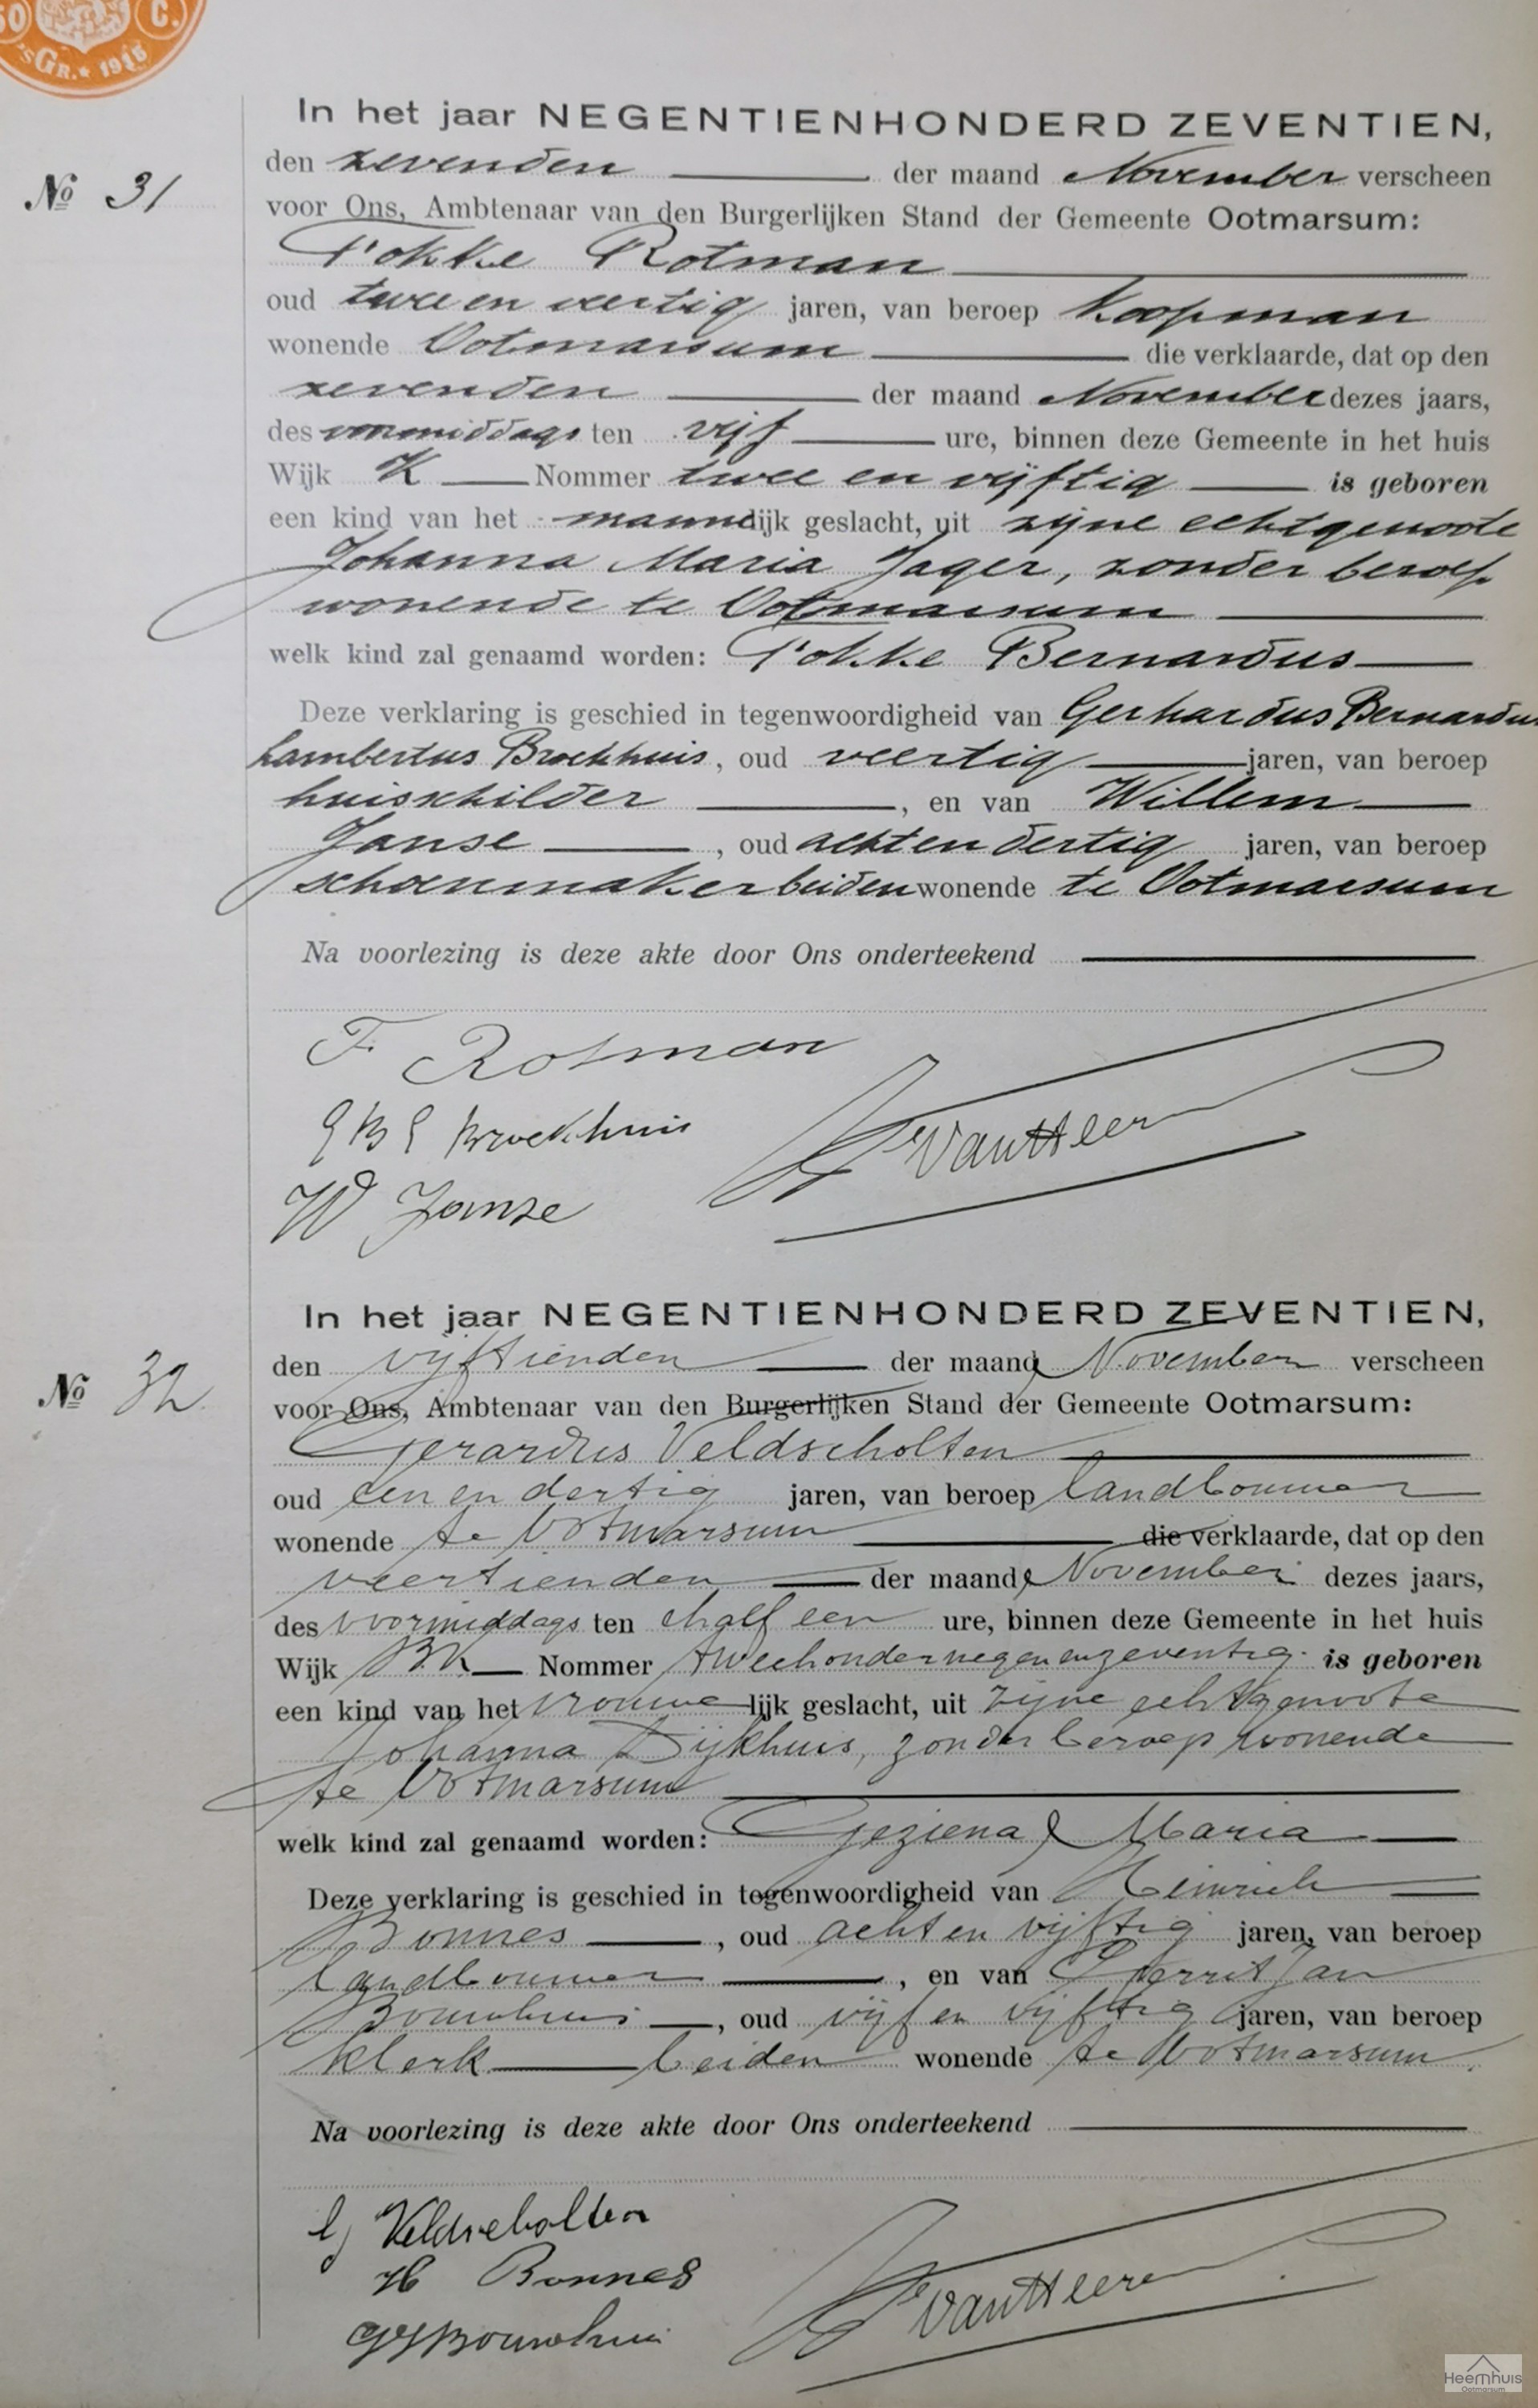 50 C.
'sGr. * 1916
In het jaar NEGENTIENHONDERD ZEVENTIEN,
den zevenden der maand November verscheen
No 31
voor Ons, Ambtenaar van den Burgerlijken Stand der Gemeente Ootmarsum:
Fokke Rotman
oud twee en veertig jaren, van beroep koopman
wonende Ootmarsum die verklaarde, dat op den
zevenden der maand November dezes jaars,
des voormiddags ten vijf ure, binnen deze Gemeente in het huis
Wijk K Nommer twee en vijftig is geboren
een kind van het mannelijk geslacht, uit zijne echtgenoote
Johanna Maria Jager, zonder beroep
wonende te Ootmarsum
welk kind zal genaamd worden: Fokke Bernardus
Deze verklaring is geschied in tegenwoordigheid van Gerhardus Bernardus
Lambertus Broekhuis, oud veertig jaren, van beroep
huisschilder, en van Willem
Janse, oud acht en dertig jaren, van beroep
schoenmaker beiden wonende te Ootmarsum
Na voorlezing is deze akte door Ons onderteekend
F Rotman
G B L Broekhuis
van Heer
W Janse
In het jaar NEGENTIENHONDERD ZEVENTIEN,
den vijftienden der maand November verscheen
No 32
voor Ons, Ambtenaar van den Burgerlijken Stand der Gemeente Ootmarsum:
Gerardus Veldscholten
oud een en dertig jaren, van beroep landbouwer
wonende te Ootmarsum die verklaarde, dat op den
veertienden der maand November dezes jaars,
des voormiddags ten half een ure, binnen deze Gemeente in het huis
Wijk Nommer tweehondernegenenzeventig is geboren
een kind van het vrouwelijk geslacht, uit zijne echtgenoote
Johanna Dijkhuis, zonder beroep wonende
te Ootmarsum
welk kind zal genaamd worden: Geziena Maria
Deze verklaring is geschied in tegenwoordigheid van Heinrich
Bonnes, oud acht en vijftig jaren, van beroep
landbouwer, en van Gerrit Jan
Bouwhuis, oud vijf en vijftig jaren, van beroep
klerk beiden wonende te Ootmarsum.
Na voorlezing is deze akte door Ons onderteekend
G Veldscholten
H Bonnes
van Heer
GJ Bouwhuis
Heemhuis
Ootmarsum